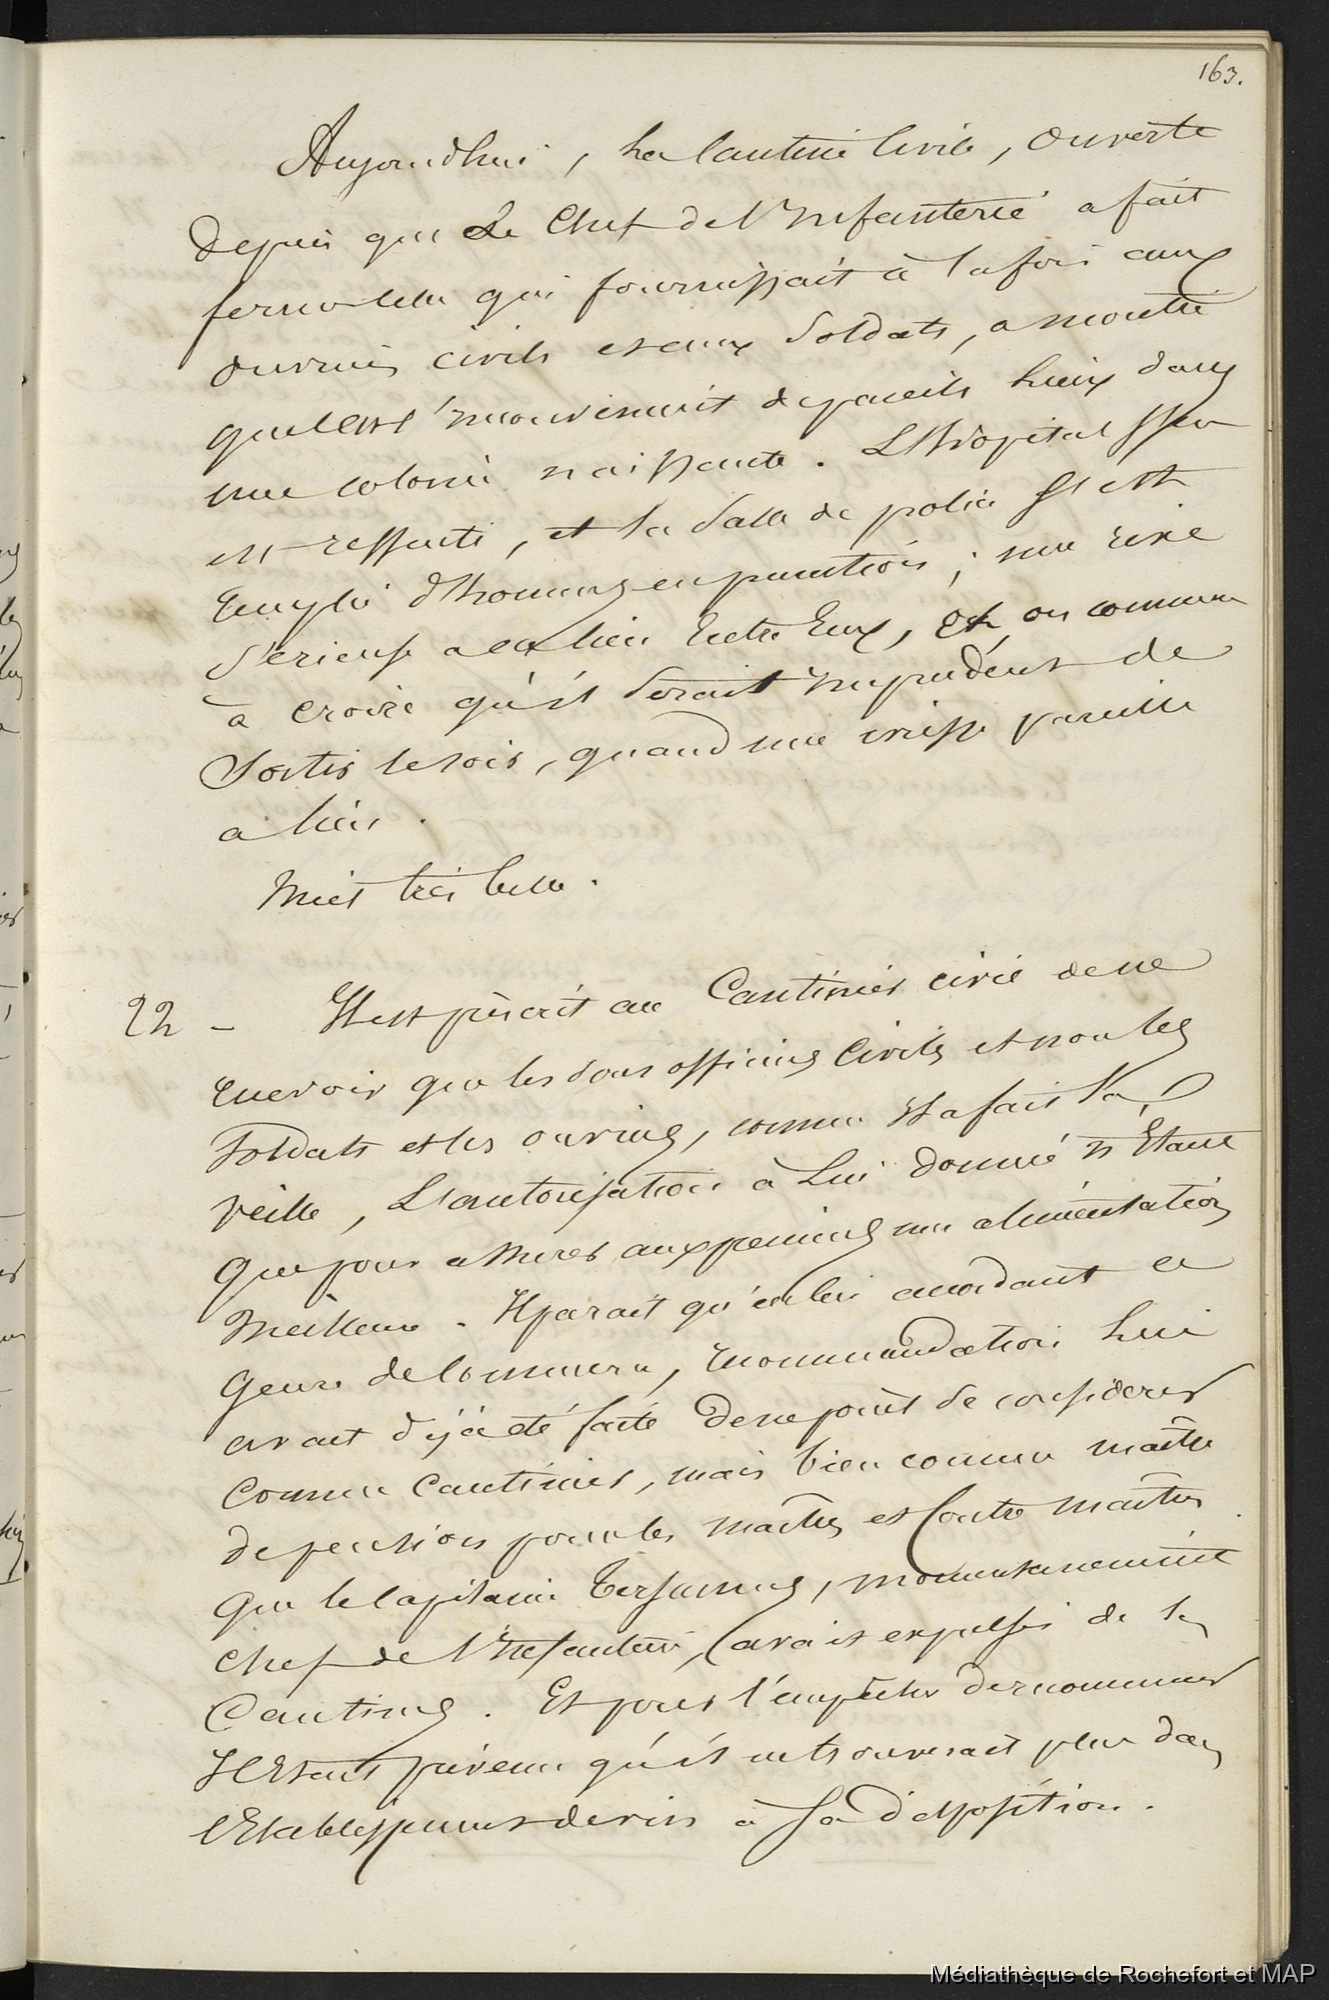 163.
Aujourdhui, La Cantine Civile, ouverte
depuis que Le Chef de l'Infanterie a fait
fermer celle qui fournissait à la fois aux
ouvriers civils et aux soldats, a montré
quel est l'inconvénient de pareils lieux dans
une colonie naissante. L'hôpital s'en
est ressenti, et la salle de police s'est
remplie d'hommes en punition; une rixe
sérieuse a eu lieu entre eux, et on commence
à croire qu'il serait imprudent de
sortir le soir, quand une ivresse pareille
a lieu.
Nuit très belle.
22 - Il est prescrit au Cantinier civil de ne
recevoir que les sous officiers civils et non les
soldats et les ouvriers, comme il a fait la
veille, L'autorisation à Lui donnée n'étant
que pour assurer aux premiers une alimentation
meilleure. Il parait qu'en lui accordant ce
genre de Commerce, recommandation lui
avait déjà été faite de ne point se considérer
comme Cantinier, mais bien comme maître
de pension pour les maîtres et Contre maîtres
que le Capitaine, momentanément
chef de l'Infanterie, avait expulsés de la
Cantine. Et pour l'empêcher de recommencer
Il Est prévenu qu'il ne trouverait plus dans
l'Etablissement de vin à sa disposition.
Médiathèque de Rochefort et MAP